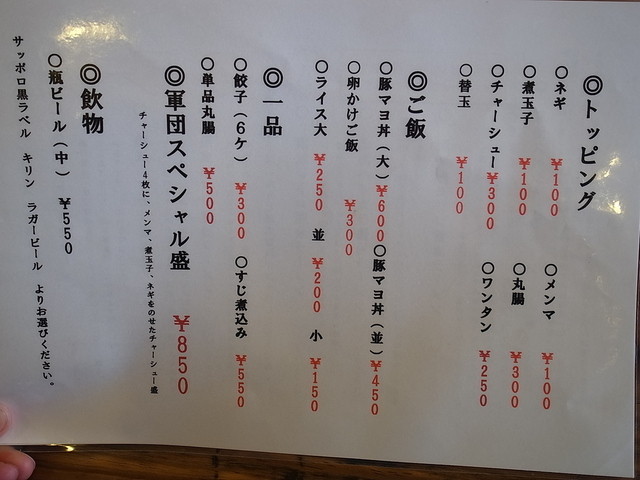 ◎トッピング
○ネギ ¥100 ○メンマ ¥100
○煮玉子 ¥100 ○丸腸 ¥300
○チャーシュー ¥300 ○ワンタン ¥250
○替玉 ¥100
◎ご飯
○豚マヨ丼（大）¥600 ○豚マヨ丼（並）¥450
○卵かけご飯 ¥300
○ライス大 ¥250 並 ¥200 小 ¥150
◎一品
○餃子（6ケ）¥300 ○すじ煮込み ¥550
○単品丸腸 ¥500
◎軍団スペシャル盛 ¥850
チャーシュー4枚に、メンマ、煮玉子、ネギをのせたチャーシュー盛
◎飲物
○瓶ビール（中）¥550
サッポロ黒ラベル キリン ラガービール よりお選びください。